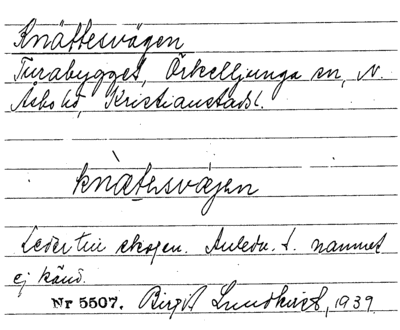 Knättesvägen
Turabygget, Örkelljunga sn, N.
Åsbo hd, Kristianstads l.
knætesvægen
Leder till skogen. Anledn. t. namnet
ej känd.
Nr 5507. Birgit Lundkvist, 1939.